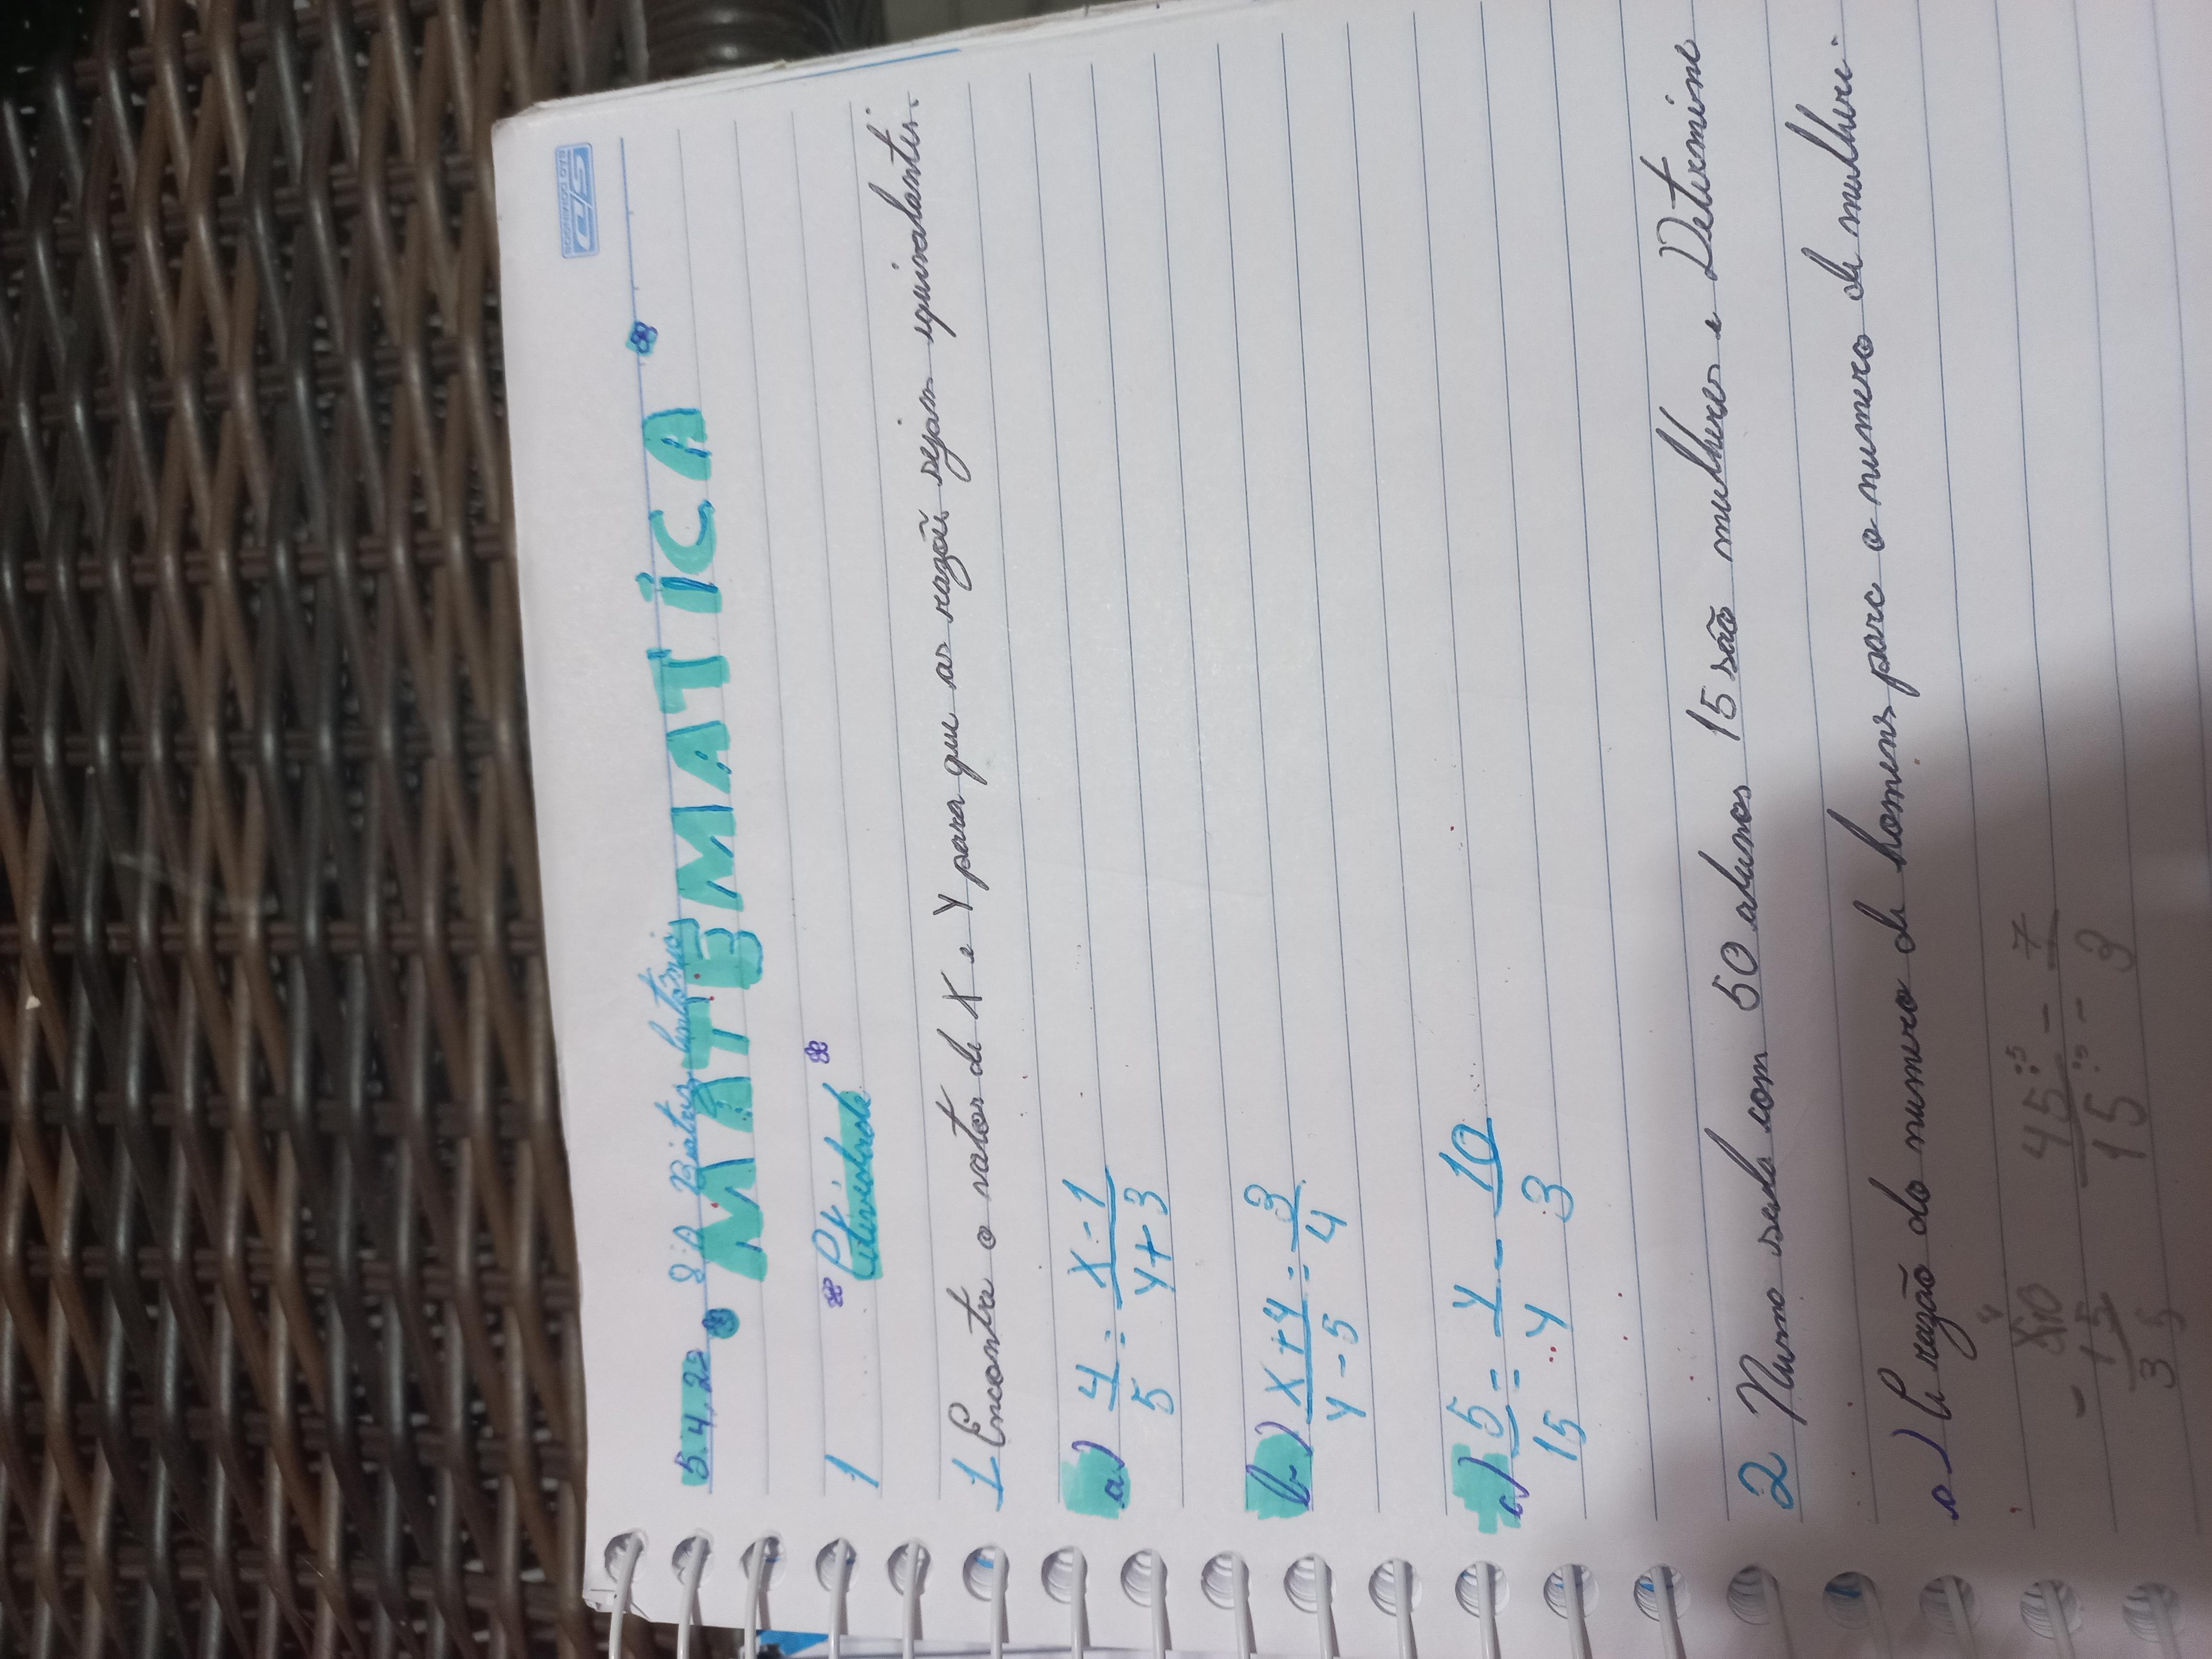 SÃO DOMINGOS
5.4.22 8:A Beatriz Antônio
MATEMATiCA
1 Atividade
1 Encontre o valor de X e Y para que as razõis sejam equivalentes.
a) 4/5 = X-1/Y+3
b-) X+4/Y-5 = 3/4
c) 5/15 = Y/Y - 10/3
2 Numa sala com 50 alunos 15 são mulheres e Determine
a) A razão do numero de homens para o numero de mulheres.
- 15 45 : 5 - 7
3 5 15 : 5 - 3